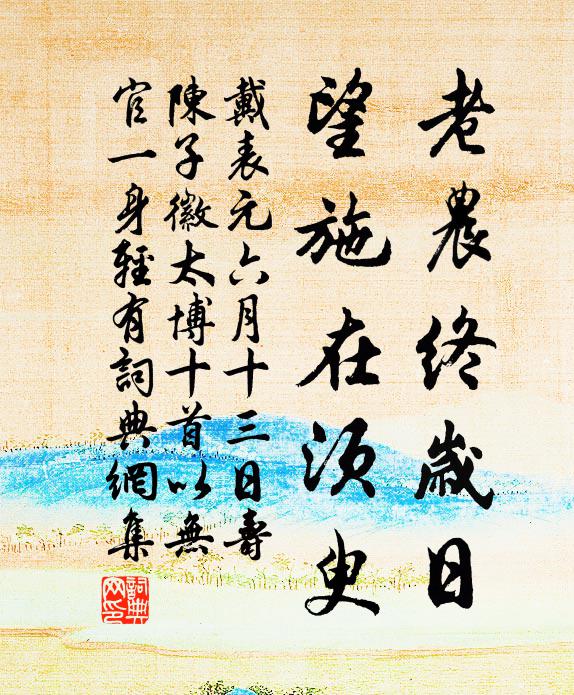 老農終歲日
望施在須臾
戴表元六月十三日壽
陳子徽太博十首以無
官一身輕有詞典網集
詞典
网印